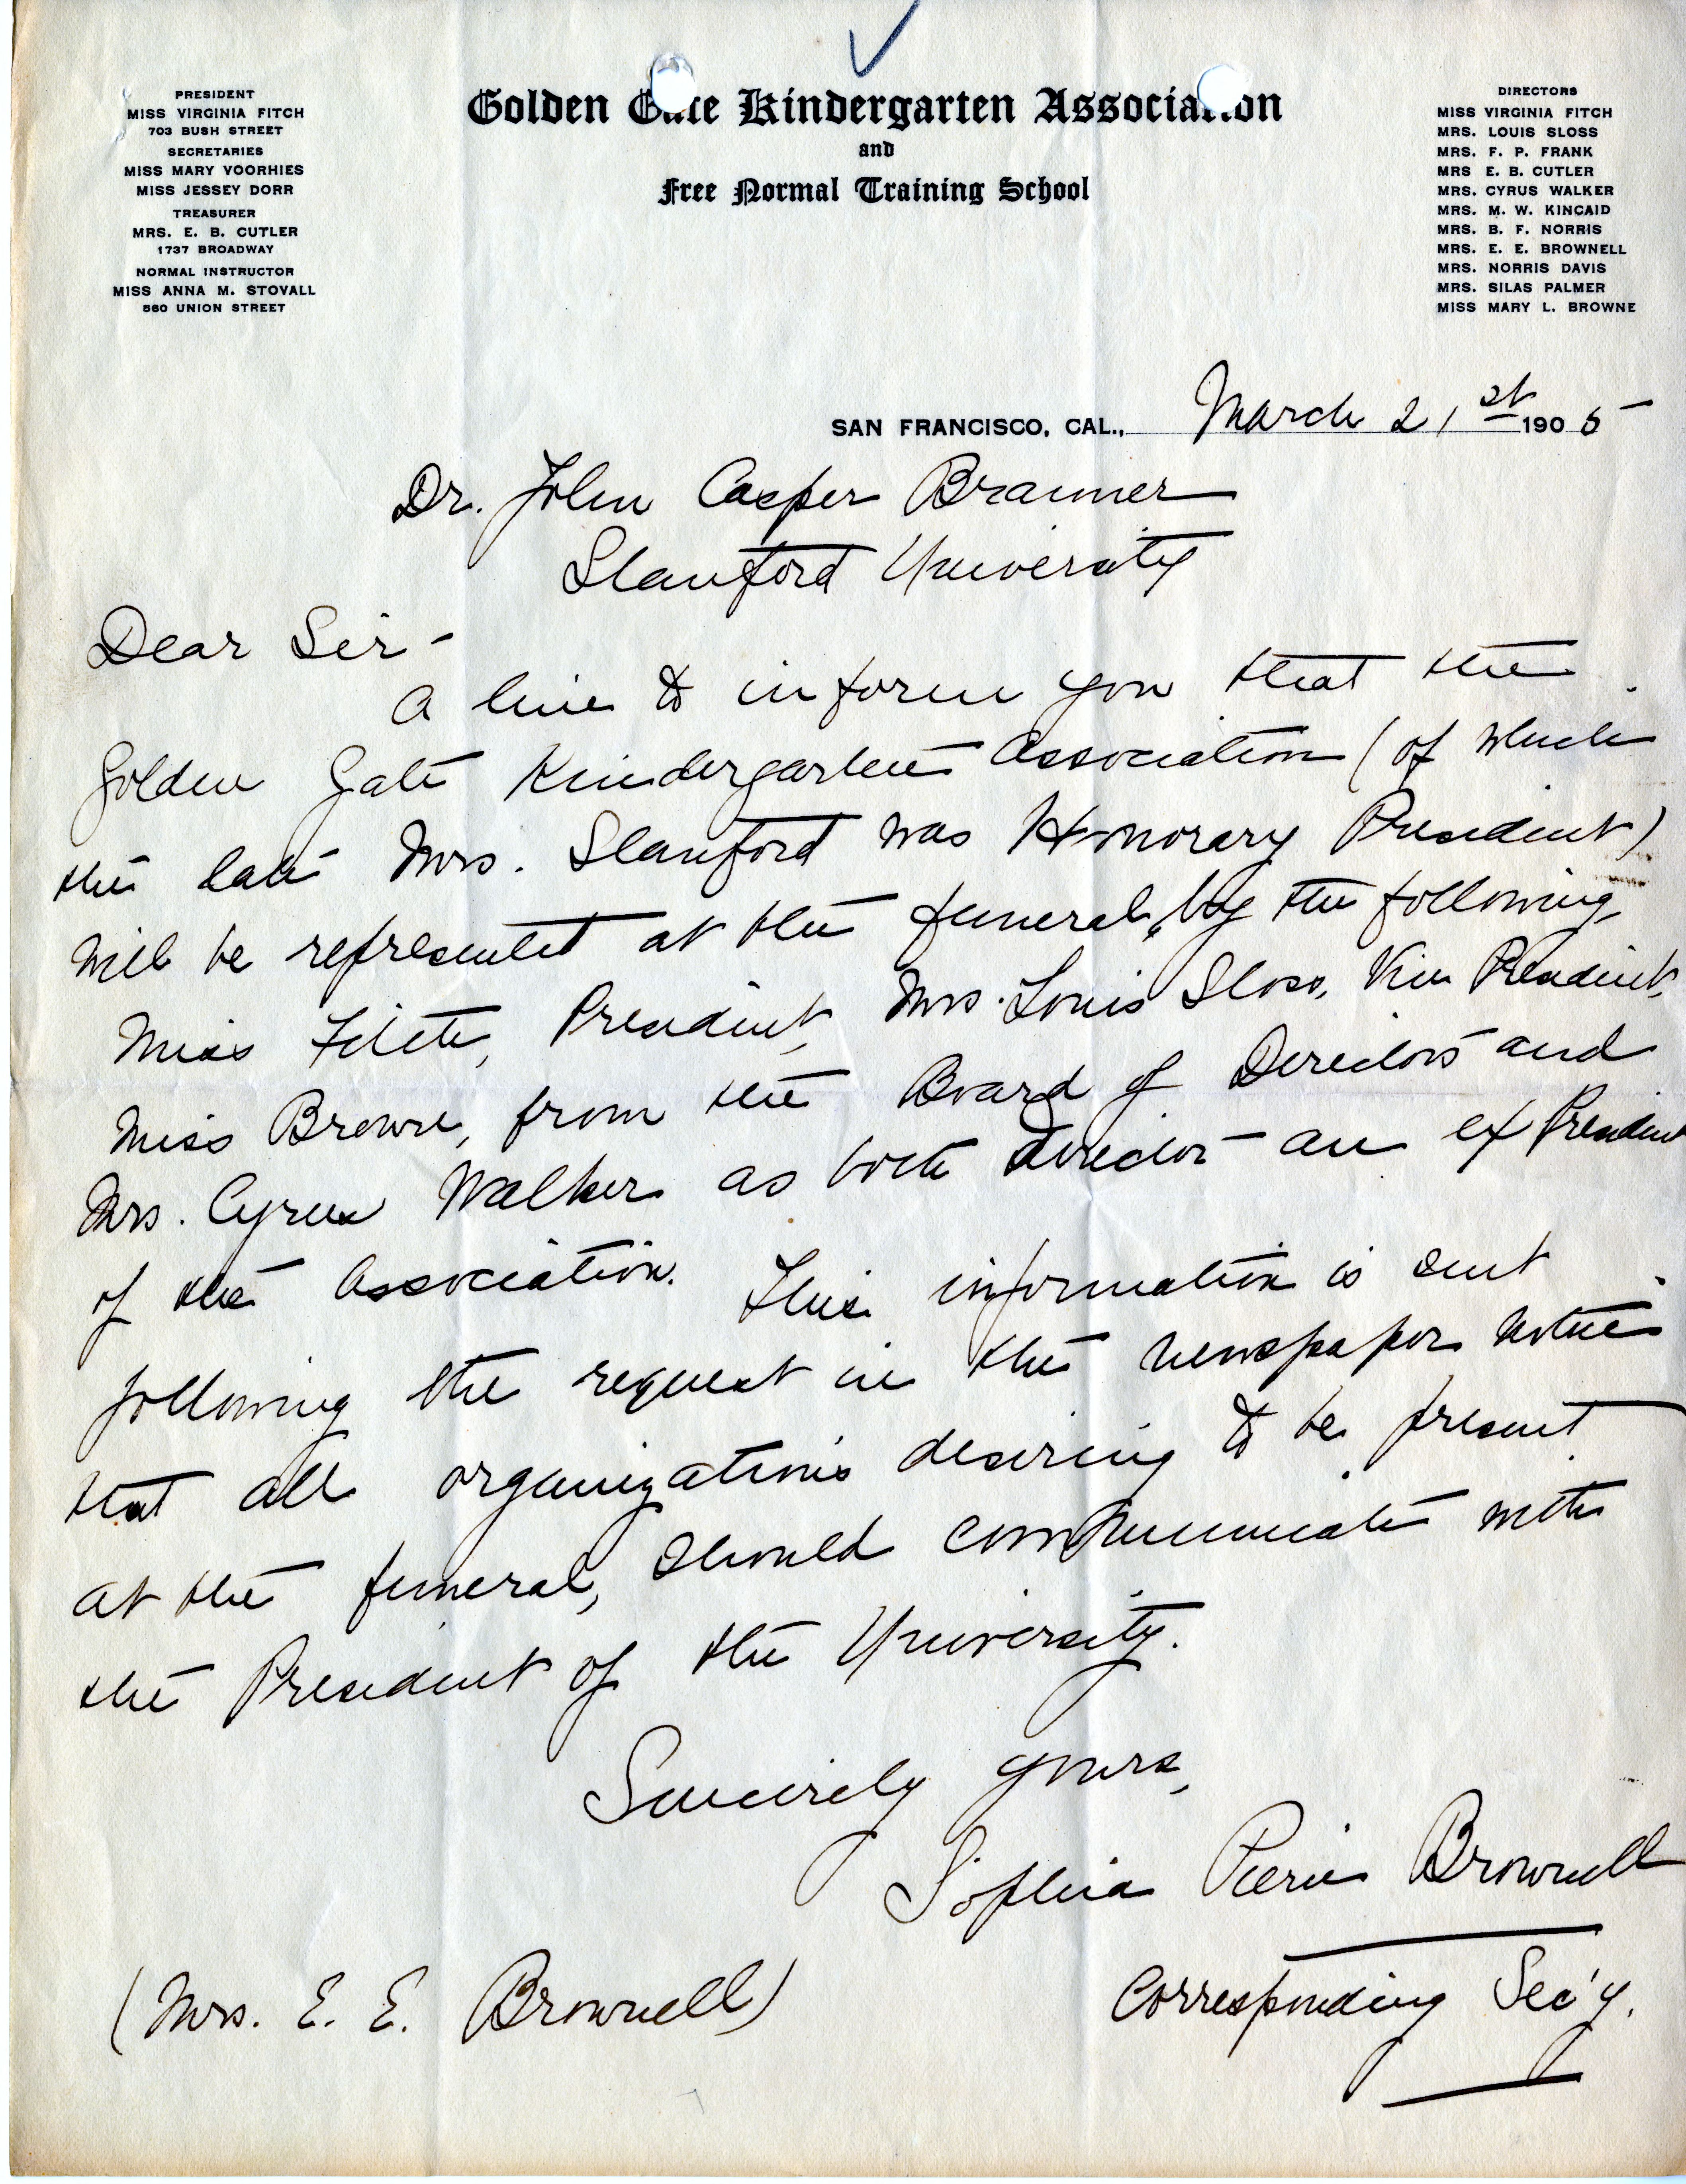 PRESIDENT
MISS VIRGINIA FITCH
703 BUSH STREET
SECRETARIES
MISS MARY VOORHIES
MISS JESSEY DORR
TREASURER
MRS. E. B. CUTLER
1737 BROADWAY
NORMAL INSTRUCTOR
MISS ANNA M. STOVALL
560 UNION STREET
Golden Gate Kindergarten Association
and
Free Normal Training School
DIRECTORS
MISS VIRGINIA FITCH
MRS. LOUIS SLOSS
MRS. F. P. FRANK
MRS E. B. CUTLER
MRS. CYRUS WALKER
MRS. M. W. KINCAID
MRS. B. F. NORRIS
MRS. E. E. BROWNELL
MRS. NORRIS DAVIS
MRS. SILAS PALMER
MISS MARY L. BROWNE
SAN FRANCISCO, CAL., March 21st 1905
Dr. John Casper Branner
Stanford University
Dear Sir -
A line to inform you that the
Golden Gate Kindergarten Association (of which
the late Mrs. Stanford was Honorary President)
will be represented at the funeral, by the following,
Miss Fitch, President, Mrs. Louis Sloss, Vice President,
Miss Brown, from the Board of Directors and
Mrs. Cyrus Walker as both director an ex President
of the Association. This information is sent
following the request in the newspaper notice
that all organizations desiring to be present
at the funeral, should communicate with
the President of the University.
Sincerely yours,
Sophia Pierce Brownell
Corresponding Sec'y.
(Mrs. E. E. Brownell)